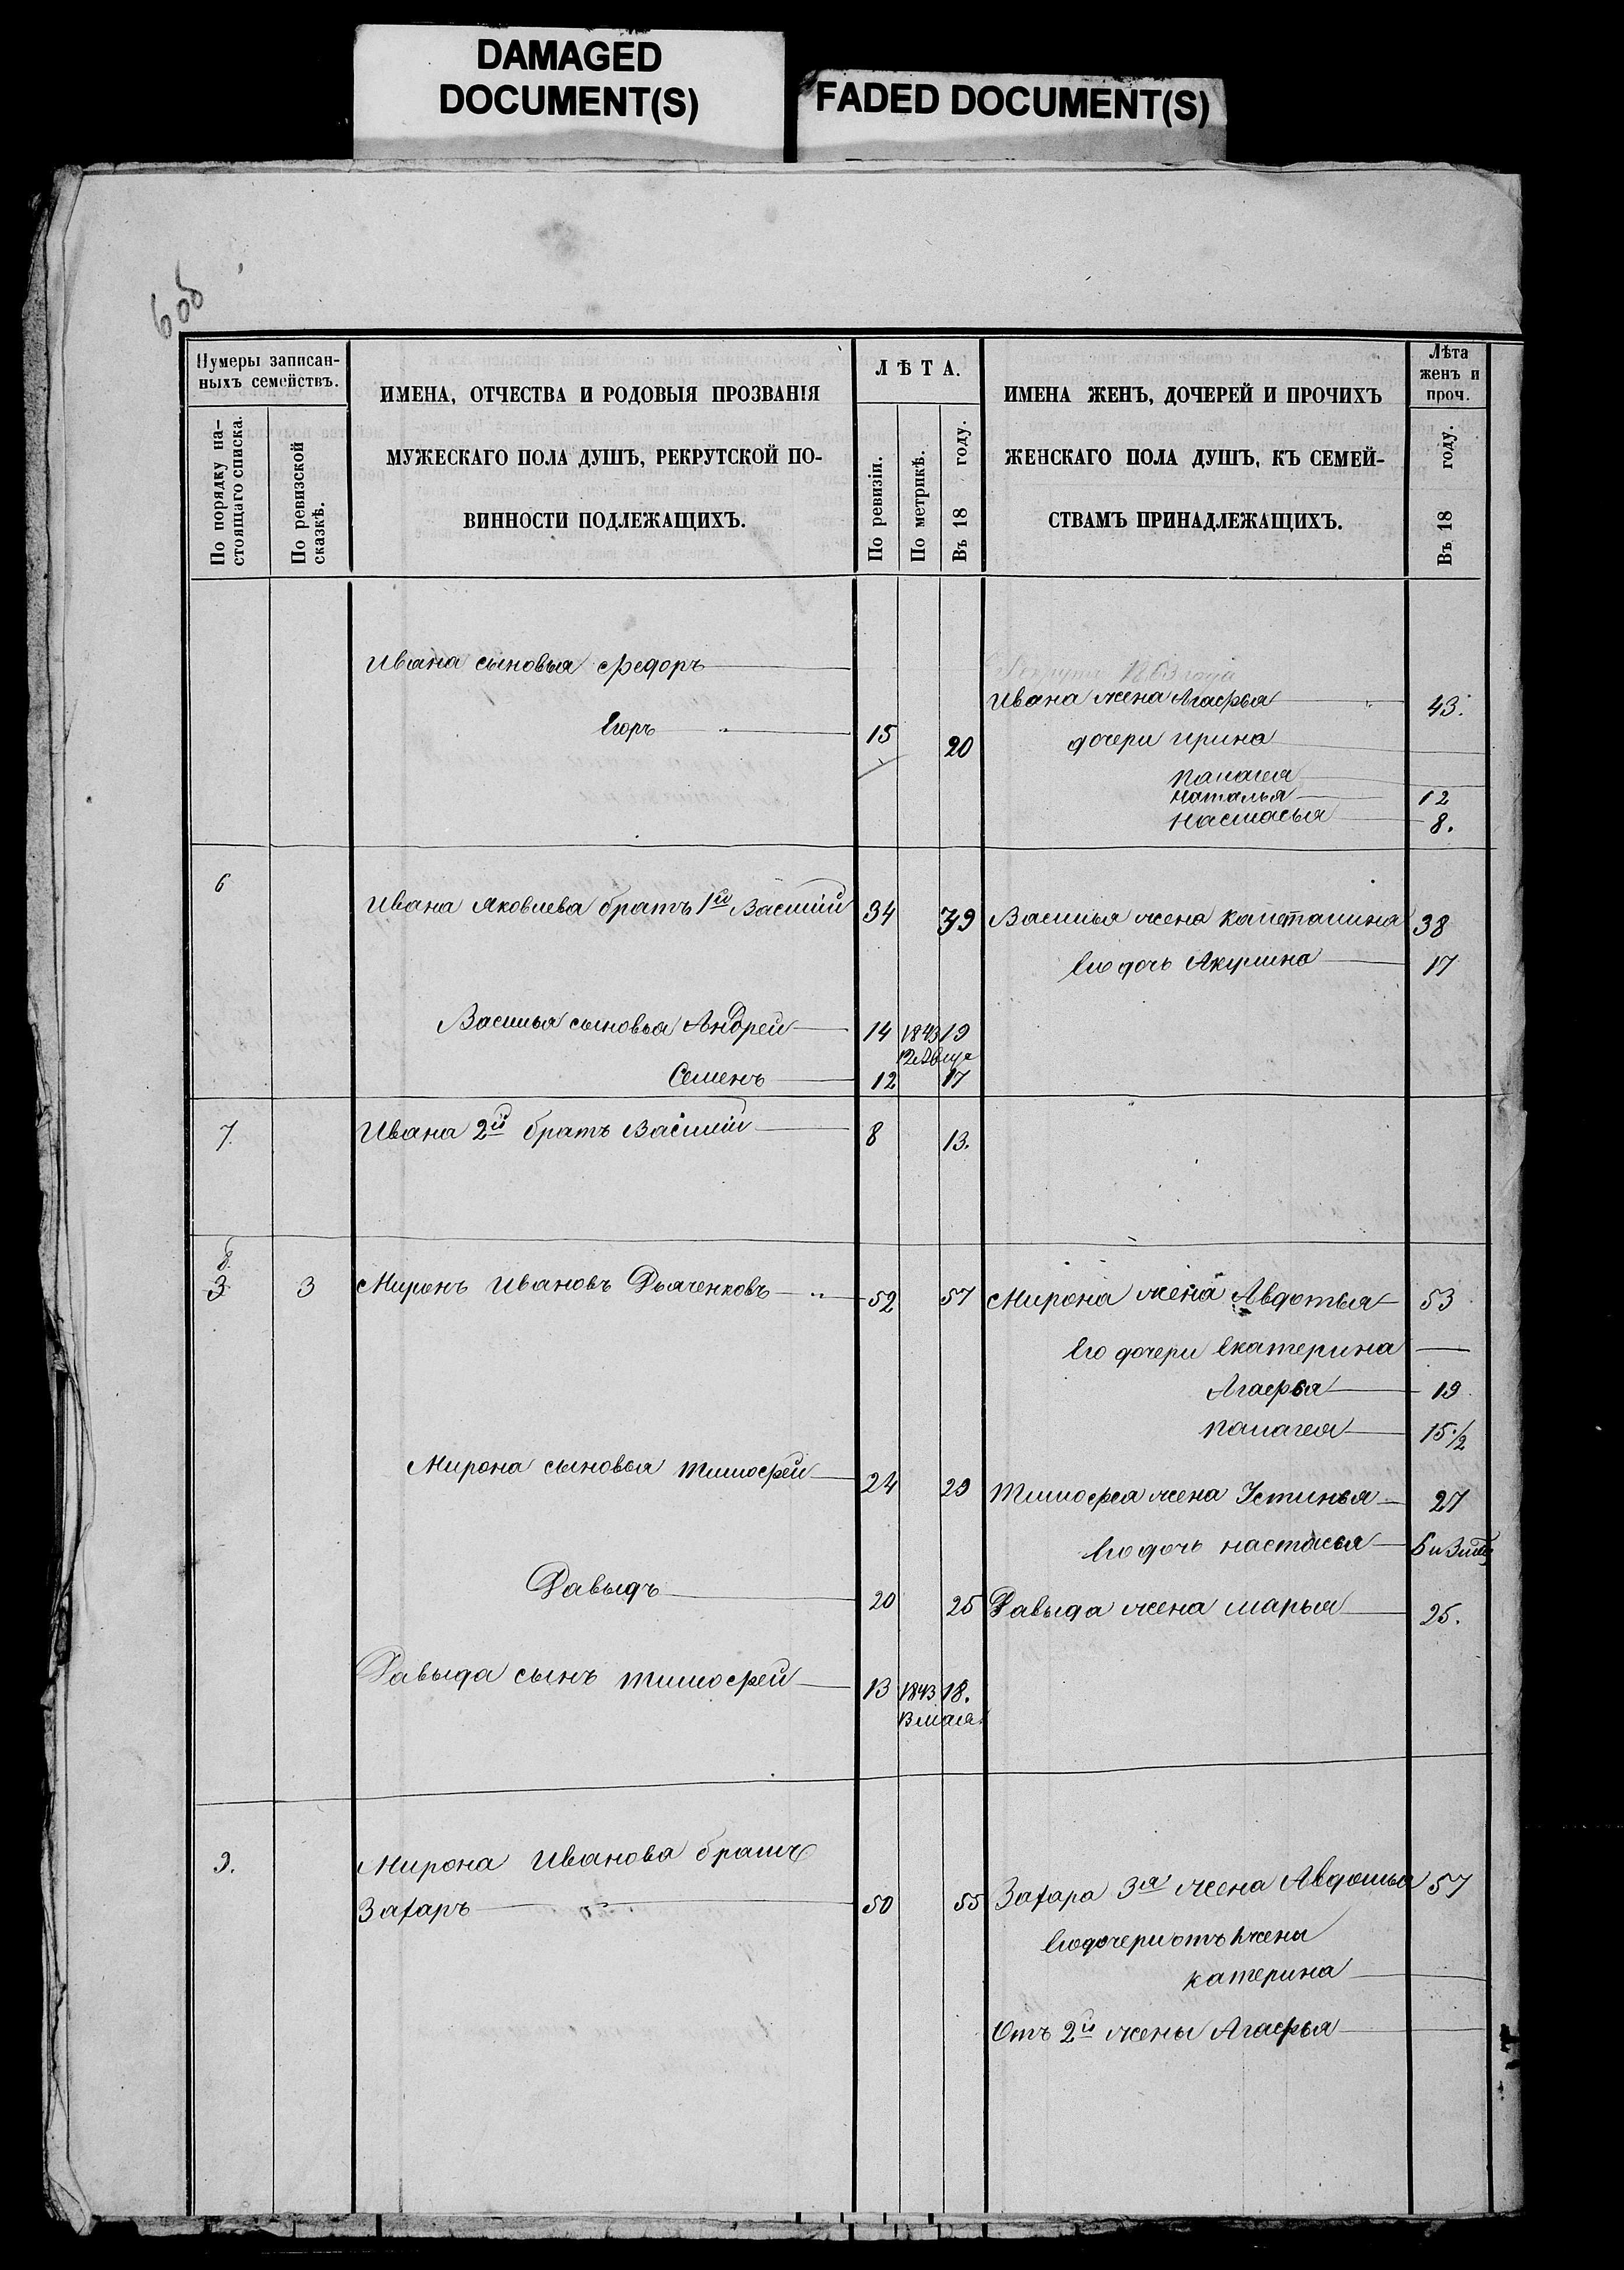 DAMAGED
DOCUMENT(S)
FADED DOCUMENT(S)
6 об
Нумеры записан-
ныхъ семействъ.
По порядку на-
стоящаго списка.
По ревизской
сказкѣ.
ИМЕНА, ОТЧЕСТВА И РОДОВЫЯ ПРОЗВАНІЯ
МУЖЕСКАГО ПОЛА ДУШЪ, РЕКРУТСКОЙ ПО-
ВИННОСТИ ПОДЛЕЖАЩИХЪ.
ЛѢТА.
По ревизіи.
По метрикѣ.
Въ 18 году.
ИМЕНА ЖЕНЪ, ДОЧЕРЕЙ И ПРОЧИХЪ
ЖЕНСКАГО ПОЛА ДУШЪ, КЪ СЕМЕЙ-
СТВАМЪ ПРИНАДЛЕЖАЩИХЪ.
Лѣта
женъ и
проч.
Въ 18 году.
Ивана сыновья Федоръ
1863 года
Ивана жена Агафья 43.
Егоръ 15 20 дочери ирина
палагея
наталья 12
настасья 8.
6 Ивана Яковлева братъ 1й Василій 34 39 Василья жена капеталина 38
Его дочь Акулина 17
Василья сыновья Андрей 14 1843 19
12 Авгус
Семенъ 12 17
7. Ивана 2й братъ Василий 8 13.
8.
3. 3 Миронъ Ивановъ Дьяченковъ 52 57 Мирона жена Авдотья 53
Его дочери Екатерина —
Агафья 19
палагея 15 1/2
Мирона сыновья тимофей 24 29 Тимофея жена Устинья 27
Его дочь настасья
Давыдъ 20 25 Давыда жена марья 25.
Давыда сынъ тимофей 13 1843 18.
3 мая
9. Мирона Иванова братъ
Захаръ 50 55 Захара 3я жена Авдотья 57
Его дочери отъ 1 жены
катерина
Отъ 2й жены Агафья